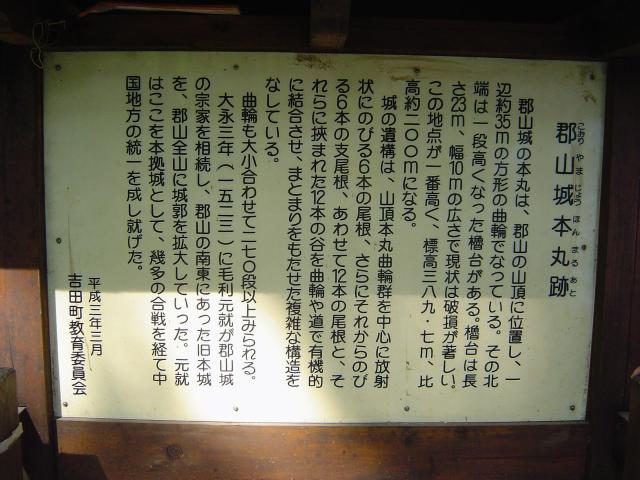 郡山城本丸跡
こおり やま じょう ほん まる あと
郡山城の本丸は、郡山の山頂に位置し、一
辺約35mの方形の曲輪でなっている。その北
端は一段高くなった櫓台がある。櫓台は長
さ23m、幅10mの広さで現状は破損が著しい。
この地点が一番高く、標高三八九・七m、比
高約二〇〇mになる。
城の遺構は、山頂本丸曲輪群を中心に放射
状にのびる6本の尾根、さらにそれからのび
る6本の支尾根、あわせて12本の尾根と、そ
れらに挟まれた12本の谷を曲輪や道で有機的
に結合させ、まとまりをもたせた複雑な構造を
なしている。
曲輪も大小合わせて二七〇段以上みられる。
大永三年（一五二三）に毛利元就が郡山城
の宗家を相続し、郡山の南東にあった旧本城
を、郡山全山に城郭を拡大していった。元就
はここを本拠城として、幾多の合戦を経て中
国地方の統一を成し就げた。
平成三年三月
吉田町教育委員会